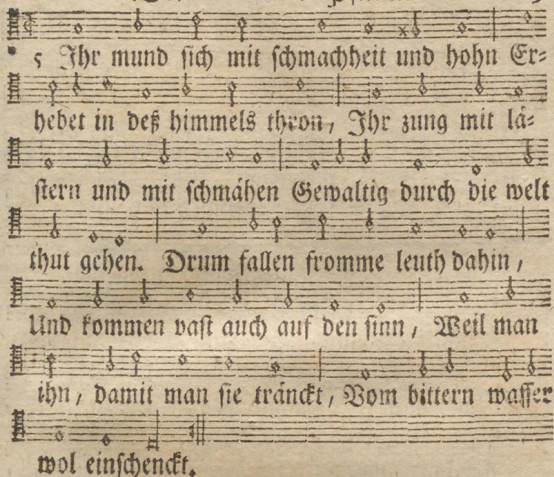 5 Ihr mund sich mit schmachheit und hohn Er-
hebet in deß himmels thron, Ihr zung mit lä-
stern und mit schmähen Gewaltig durch die welt
thut gehen. Drum fallen fromme leuth dahin,
Und kommen vast auch auf den sinn, Weil man
ihn, damit man sie tränckt, Vom bittern wasser
wol einschenckt.